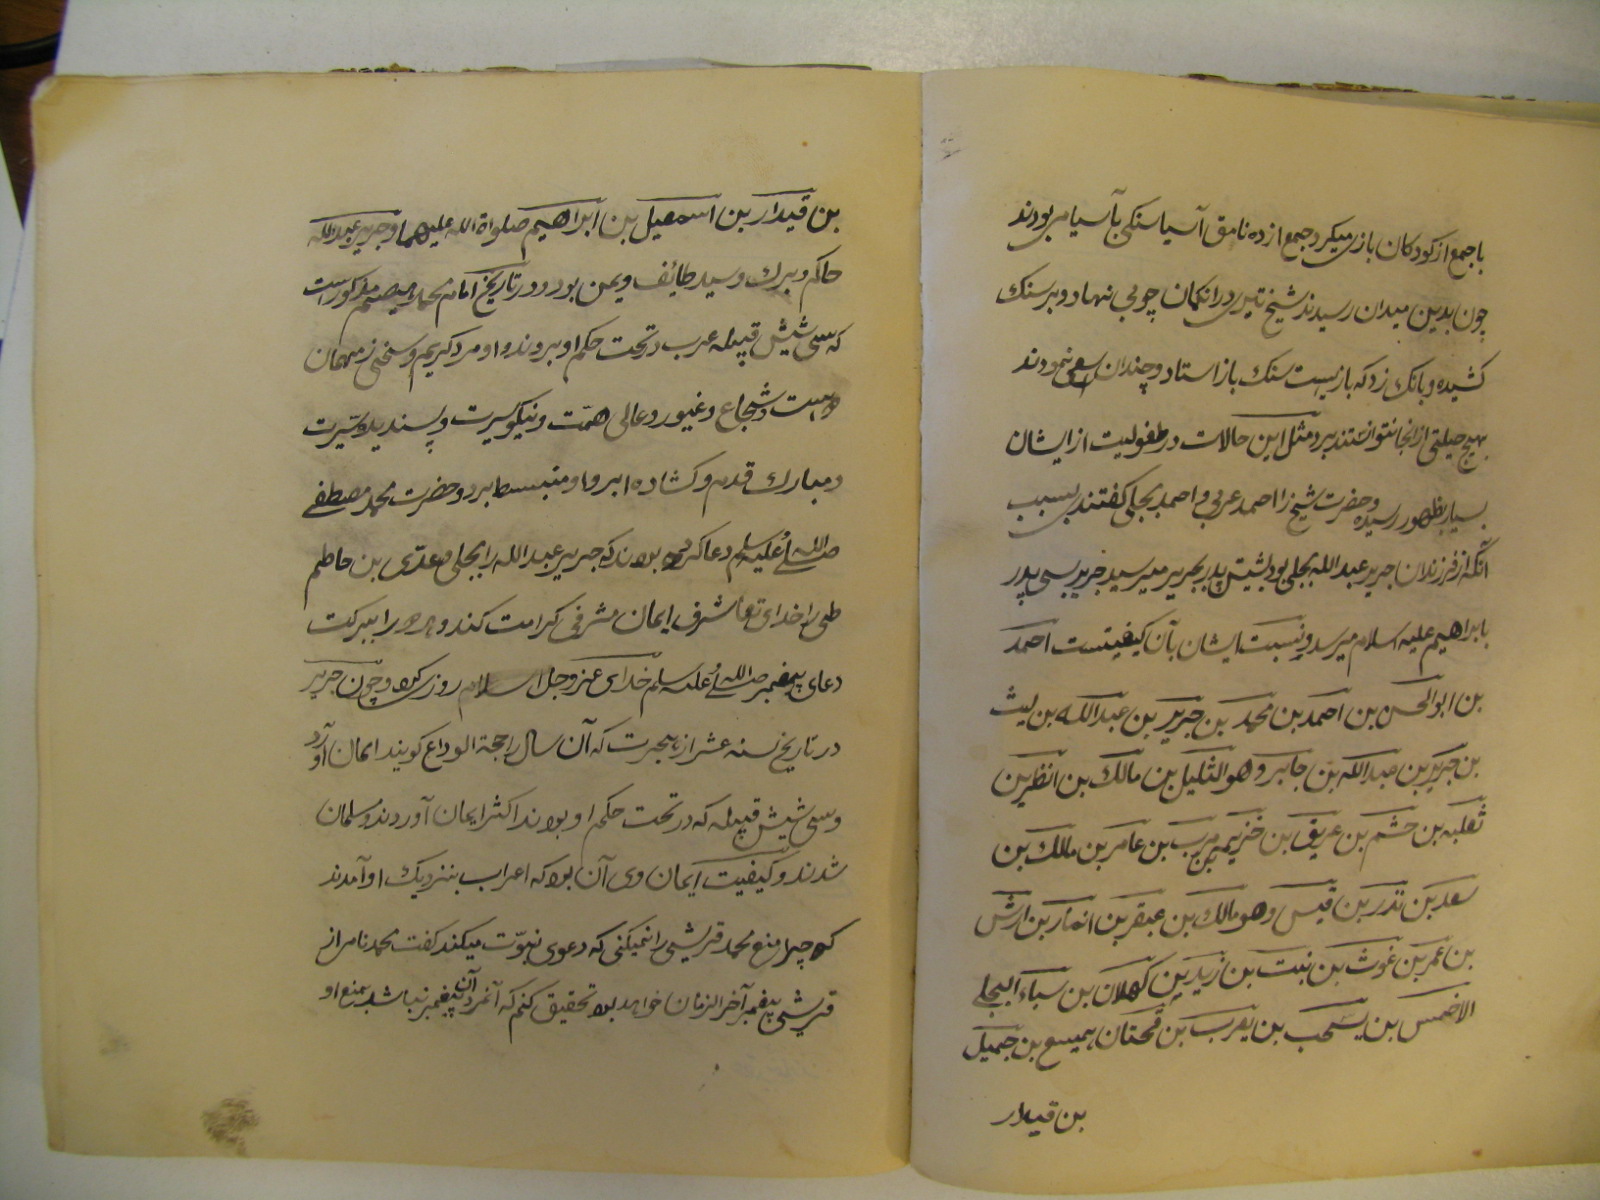 با جمع از کودکان بازی میکرد جمع از ده نامق آسیا سنکی بآسیا می بودند
چون بدین میدان رسیدند شیخ تیری در انکمان چوبی نهاد و بر سنک
کشیده و بانک زد که بازیست سنک باز استاد و چندان سعی نمودند
بهیچ حیلتی از انجا نتوانستند برد مثل این حالات در طفولیت از ایشان
بسیار بظهور رسیده و حضرت شیخ را احمد عربی و احمد بجلی کفتند بسبب
آنکه از فرزندان جریر عبدالله بجلی بود بشیش پدر بجریر میرسید جریر بسی پدر
بابراهیم علیه سلام میرسد و نسبت ایشان بآن کیفیتست احمد
بن ابوالحسن بن احمد بن محمد بن جریر بن عبدالله بن لیث
بن جریر بن عبدالله بن جابر وهو الثلیل بن مالک بن انظر بن
ثعلبه بن جشم بن عریق بن خزیمه بن حرب بن عامر بن مالک بن
سعد بن نذر بن قیس وهو مالک بن عبقر بن انمار بن ارش
بن عمر بن غوث بن نبت بن زید بن کهلان بن سباء البجلی
الاخمس بن یسحب بن یعرب بن قحتان بن همیسع بن جمیل
بن قیدار
بن قیدار بن اسمعیل بن ابراهیم صلواة الله علیهما و جریر عبدالله
حاکم و بزرك و سید طائف و یمن بود و در تاریخ امام محمد مذکور است
که سی شیش قبیله عرب در تحت حکم او بودند و او مرد کریم و سخی ز مهمان
دوست و شجاع و غیور و عالی همّت و نیکو سیرت و پسندیده سیرت
و مبارك قدم و کشاده ابرو و منبسط بود و حضرت محمد مصطفی
صلی الله علیه سلم دعا کرده بودند که جریر عبدالله را بجلی و عدی بن حاطم
طی را خدای تعا شرف ایمان مشرف کرامت کند و را ببرکت
دعای پیغمبر صلی الله علیه سلم خدای عزوجل اسلام روزی کرد و چون جریر
در تاریخ سنه عشر از هجرت که آن سال را حجة الوداع کویند ایمان آورد
و سی شیش قبیله که در تحت حکم او بودند اکثر ایمان آوردند و مسلمان
شدند و کیفیت ایمان وی آن بود که اعراب بنزدیك او آمدند
که چرا منع محمد قریشی را نمیکنی که دعوی نبوّت میکند کفت محمد نام از
قریشی پیغمبر آخر الزمان خواهد بود تحقیق کنم که آنمرد آن پیغمبر نباشد بمنع او